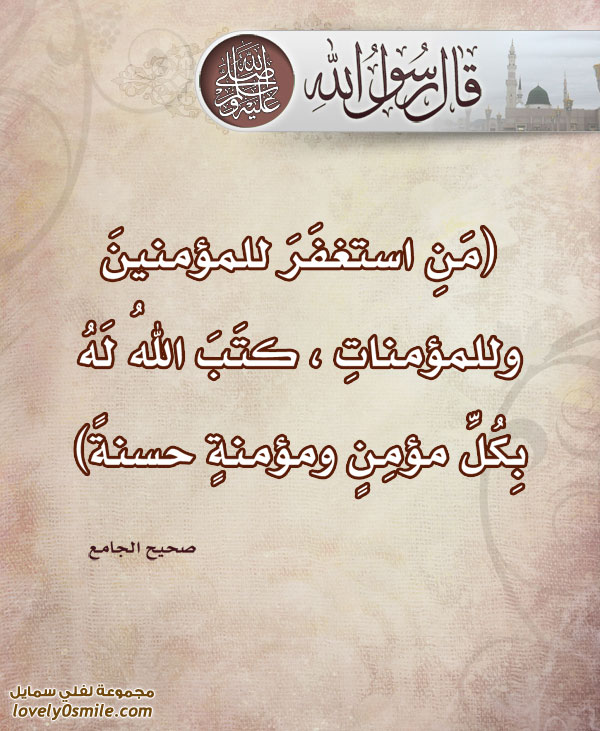 قال رسول الله
صلى الله عليه وسلم
(مَنِ استغفَرَ للمؤمنينَ
وللمؤمناتِ ، كتَبَ اللهُ لَهُ
بِكُلِّ مؤمِنٍ ومؤمنةٍ حسنةً)
صحيح الجامع
مجموعة لفلي سمايل
lovely0smile.com